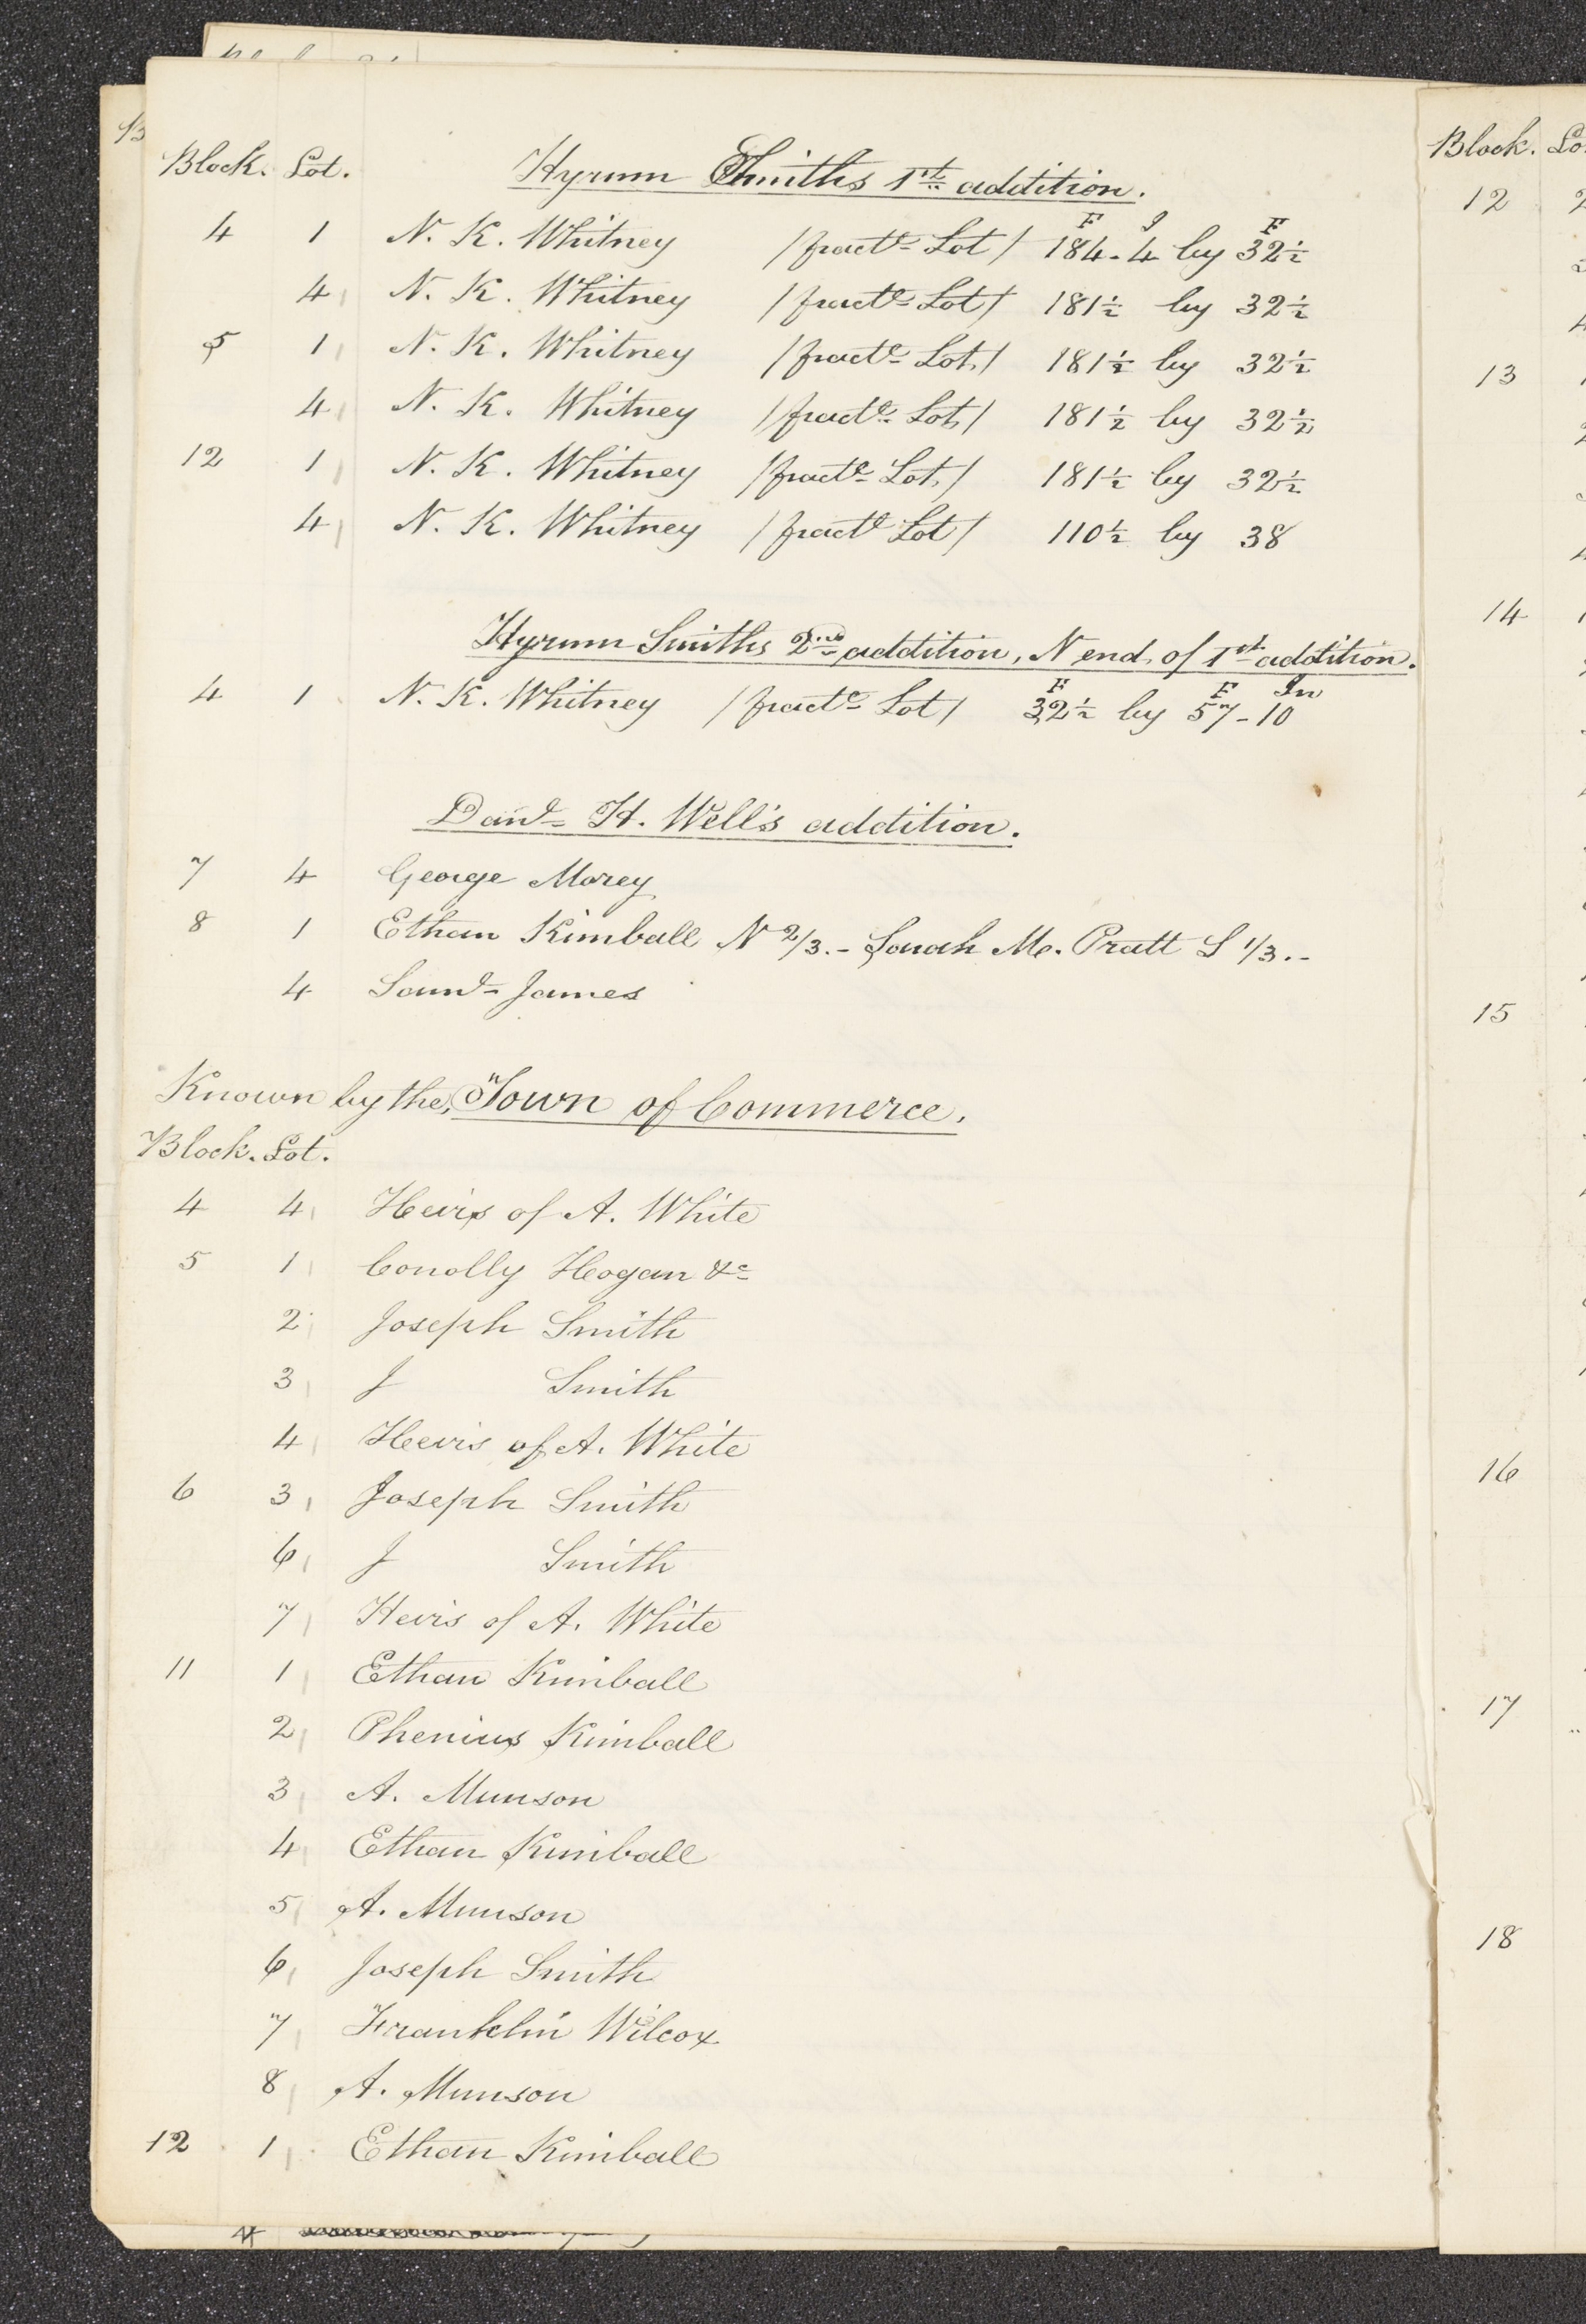 Block. Lot. Hyrum Smiths 1st addition.
F I F
4 1 N. K. Whitney /fractl Lot/ 184-4 by 32½
4 N. K. Whitney /fractl Lot/ 181½ by 32½
5 1 N. K. Whitney /fractl Lot/ 181½ by 32½
4 N. K. Whitney /fractl Lot/ 181½ by 32½
12 1 N. K. Whitney /fractl Lot/ 181½ by 32½
4 N. K. Whitney /fractl Lot/ 110½ by 38
Hyrum Smiths 2nd addition, N end, of 1st addition.
F F In
4 1 N. K. Whitney /fractl Lot/ 32½ by 57-10
Danl H. Well's addition.
7 4 George Morey
8 1 Ethan Kimball N 2/3.- Sarah M. Pratt S 1/3.-
4 Saml James
Known by the, "Town of Commerce.
Block. Lot.
4 4 Heirs of A. White
5 1 Conolly Hogan &c
2 Joseph Smith
3 J Smith
4 Heirs of A. White
6 3 Joseph Smith
6 J Smith
7 Heirs of A. White
11 1 Ethan Kimball
2 Phenius Kimball
3 A. Munson
4 Ethan Kimball
5 A. Munson
6 Joseph Smith
7 Franklin Wilcox
8 A. Munson
12 1 Ethan Kimball
4
Block. Lo
12 2
13
14
15
16
17
18